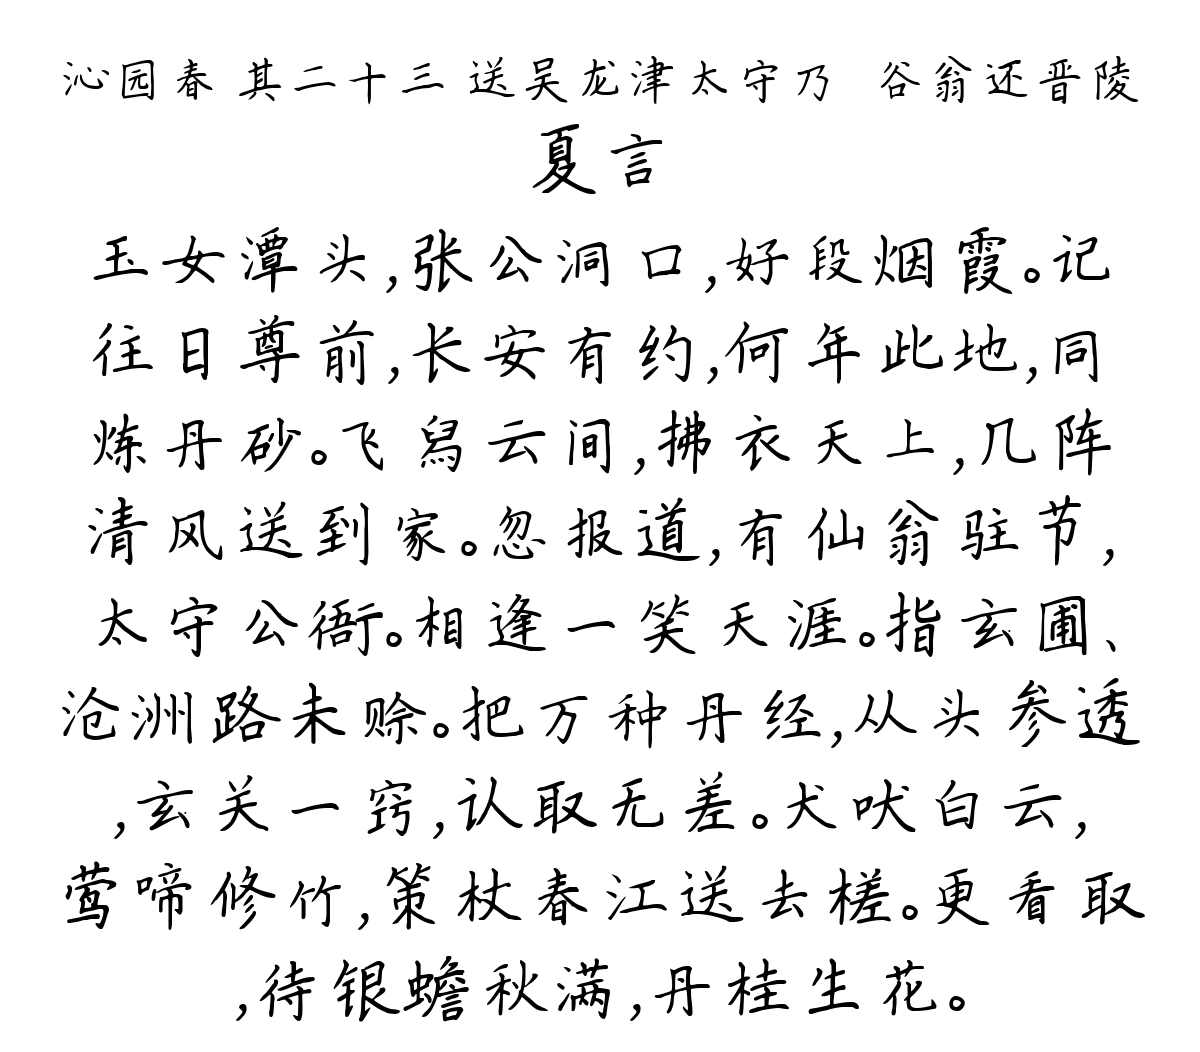 沁园春 其二十三 送吴龙津太守乃 谷翁还晋陵
夏言
玉女潭头,张公洞口,好段烟霞。记
往日尊前,长安有约,何年此地,同
炼丹砂。飞舄云间,拂衣天上,几阵
清风送到家。忽报道,有仙翁驻节,
太守公衙。相逢一笑天涯。指玄圃、
沧洲路未赊。把万种丹经,从头参透
,玄关一窍,认取无差。犬吠白云,
莺啼修竹,策杖春江送去槎。更看取
,待银蟾秋满,丹桂生花。